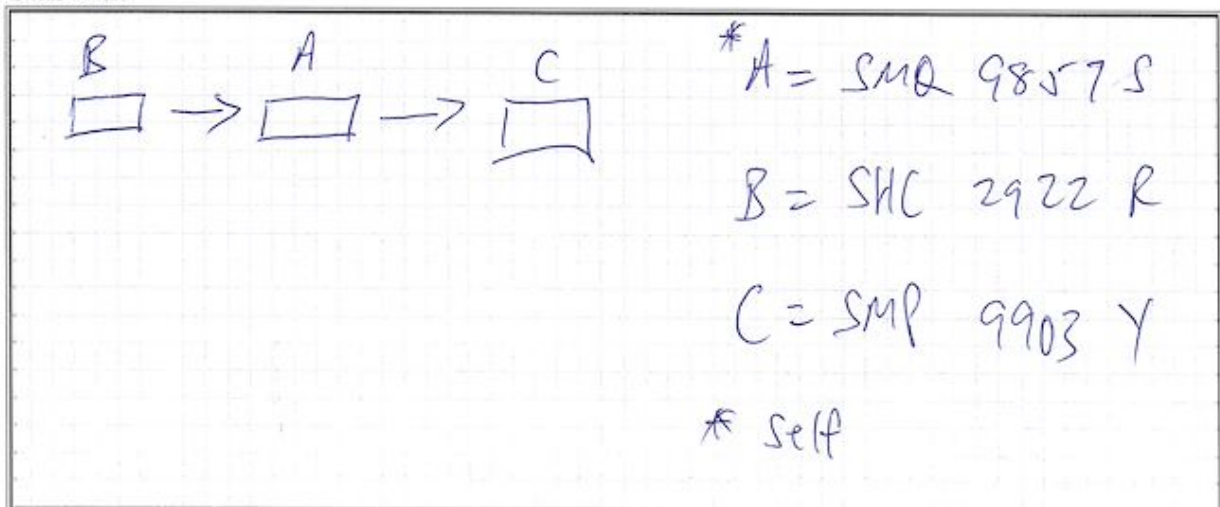 B A C
*A = SMQ 9857 S
B = SHC 2922 R
C = SMP 9903 Y
* self